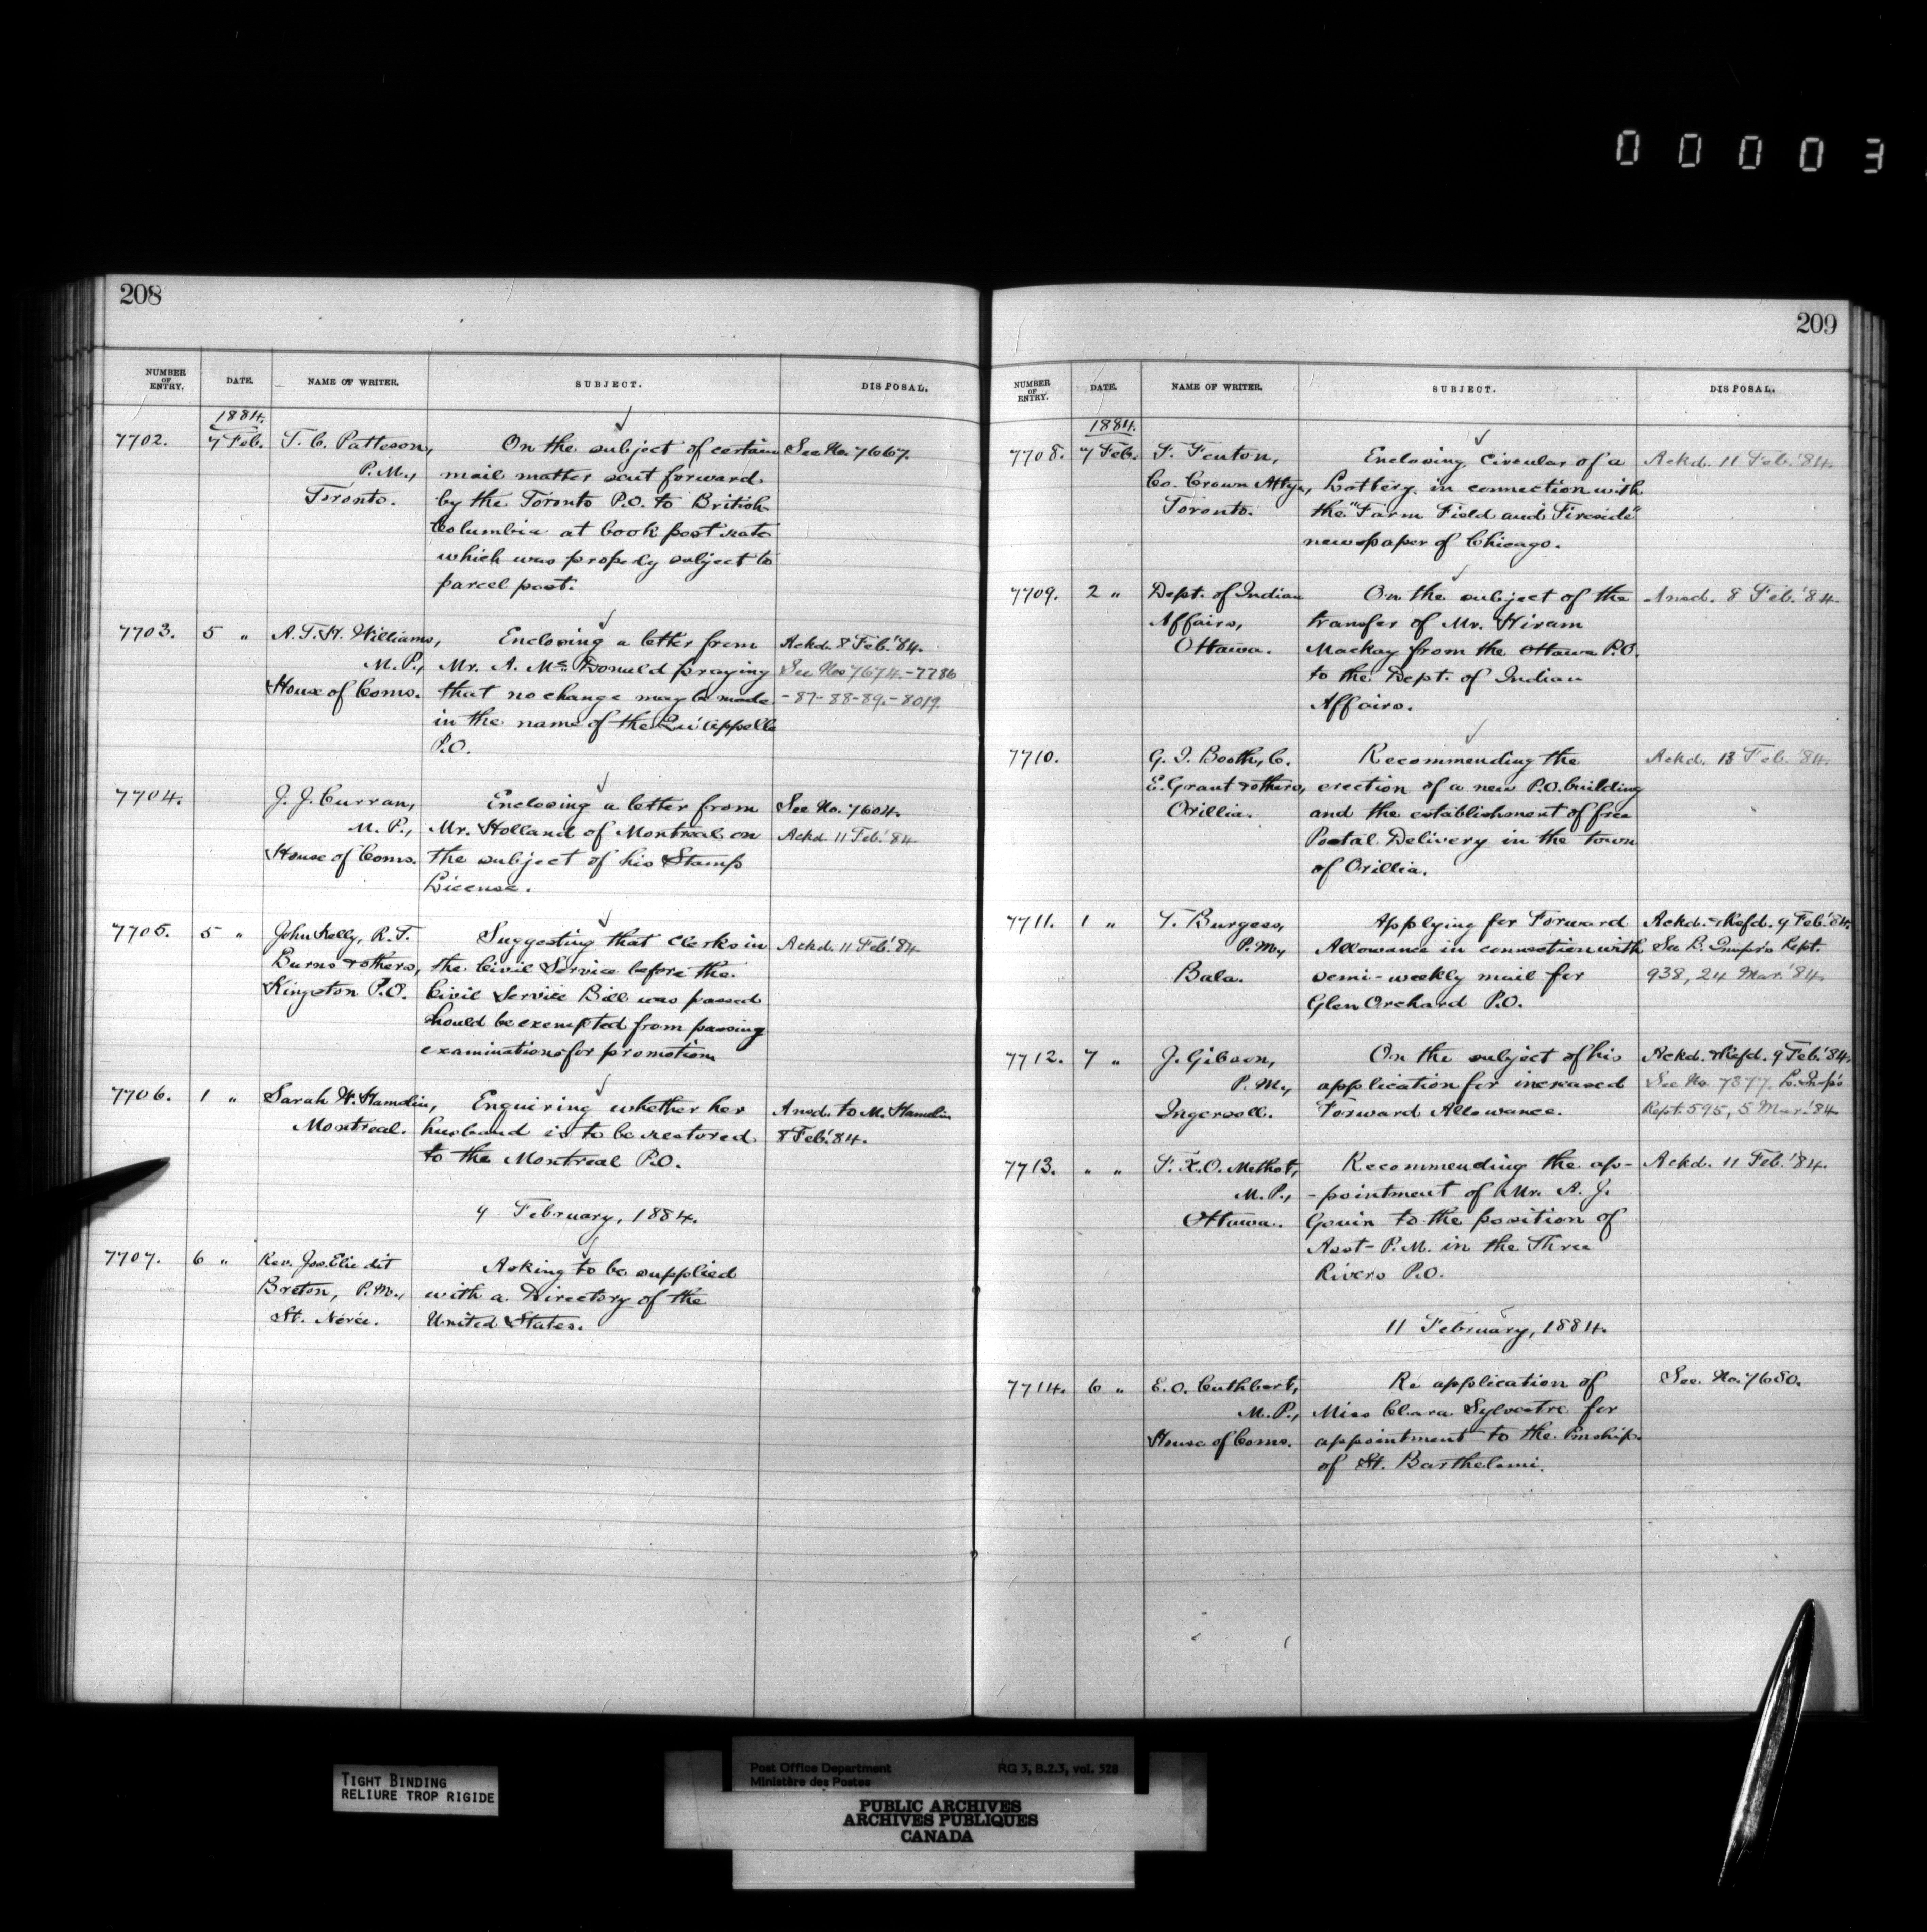 0 0 0 0 3
208
NUMBER OF ENTRY. DATE. NAME OF WRITER. SUBJECT. DISPOSAL.
1884.
7702. 7 Feb. T. C. Patteson, On the subject of certain See No. 7667.
P.M., mail matter sent forward
Toronto. by the Toronto P.O. to British
Columbia at book post rate
which was properly subject to
parcel post.
7703. 5 " A. T. H. Williams, Enclosing a letter from Ackd. 8 Feb. '84.
M. P., Mr. A. Mc. Donald praying See Nos 7674.-7786
House of Coms. that no change may be made -87-88-89.-8019.
in the name of the Qu'appelle
P.O.
7704. J. J. Curran, Enclosing a letter from See No. 7604.
M. P., Mr. Holland of Montreal on Ackd. 11 Feb. '84
House of Coms. the subject of his Stamp
License.
7705. 5 " John Kelly, R. T. Suggesting that clerks in Ackd. 11 Feb. '84
Burns & others, the Civil Service before the
Kingston P.O. Civil Service Bill was passed
should be exempted from passing
examinations for promotion
7706. 1 " Sarah W. Hamelin, Enquiring whether her Ansd. to M. Hamelin
Montreal. husband is to be restored 8 Feb. '84.
to the Montreal P.O.
9 February, 1884.
7707. 6 " Rev. Jos. Elie dit Asking to be supplied
Breton, P.M., with a Directory of the
St. Nérée. United States.
209
NUMBER OF ENTRY. DATE. NAME OF WRITER. SUBJECT. DISPOSAL.
1884.
7708. 7 Feb. F. Fenton, Enclosing Circular of a Ackd. 11 Feb. '84.
Co. Crown Atty., Lottery in connection with
Toronto. the "Farm Field and Fireside"
newspaper of Chicago.
7709. 2 " Dept. of Indian On the subject of the Ansd. 8 Feb. '84.
Affairs, transfer of Mr. Hiram
Ottawa. Mackay from the Ottawa P.O.
to the Dept. of Indian
Affairs.
7710. G. I. Booth, C. Recommending the Ackd. 13 Feb. '84.
E. Grant & others, erection of a new P.O. building
Orillia. and the establishment of free
Postal Delivery in the town
of Orillia.
7711. 1 " T. Burgess, Applying for Forward Ackd. & Refd. 9 Feb. '84.
P.M., Allowance in connection with See B. Inspr's Rept.
Bala. semi-weekly mail for 938, 24 Mar. '84.
Glen Orchard P.O.
7712. 7 " J. Gibson, On the subject of his Ackd. & Refd. 9 Feb. '84.
P.M., application for increased See No. 7377. L. Insp's
Ingersoll. Forward Allowance. Rept. 595, 5 Mar. '84
7713. " " F. X. O. Methot, Recommending the ap- Ackd. 11 Feb. '84.
M. P., -pointment of Mr. A. J.
Ottawa. Gouin to the position of
Asst- P.M. in the Three
Rivers P.O.
11 February, 1884.
7714. 6 " E. O. Cuthbert, Re application of See No. 7680.
M. P., Miss Clara Sylvestre for
House of Coms. appointment to the Pmship.
of St. Barthelemi.
TIGHT BINDING
RELIURE TROP RIGIDE
Post Office Department RG 3, B.2.3, vol. 528
Ministère des Postes
PUBLIC ARCHIVES
ARCHIVES PUBLIQUES
CANADA